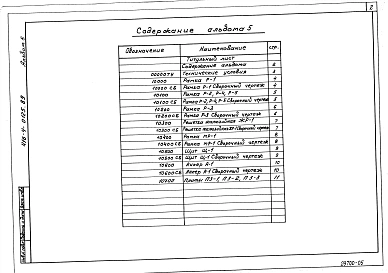 2
Содержание альбома 5
Обозначение Наименование стр.
Титульный лист
Содержание альбома 2
0000ТУ Технические условия 3
10000 Рамка Р-1 4
10000 СБ Рамка Р-1 Сборочный чертеж 4
10100 Рамка Р-2, Р-4, Р-5 5
10100 СБ Рамка Р-2, Р-4, Р-5 Сборочный чертеж 5
10200 Рамка Р-3 6
10200 СБ Рамка Р-3 Сборочный чертеж 6
10300 Решетка жалюзийная 7
10300 СБ Решетка жалюзийная Сборочный чертеж 7
10400 Рамка МР-1 8
10400 СБ Рамка МР-1 Сборочный чертеж 8
10500 Щит Щ-1 9
10500 СБ Щит Щ-1 Сборочный чертеж 9
10600 Анкер А-1 10
10600 СБ Анкер А-1 Сборочный чертеж 10
10700 Плиты П3-1, П3-2, П3-3 11
Альбом 5
09700-05